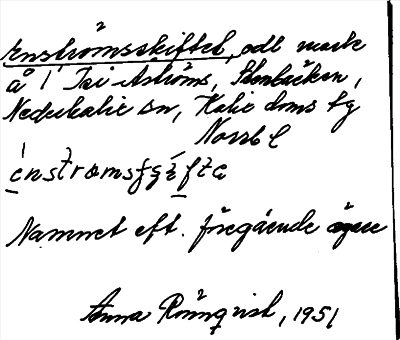 Enströmsskiftet, odl. mark
å 1 Tai Åströms, Stenbäcken,
Nederkalix sn, Kalix doms tg
Norrb l
Namnet eft. föregående ägare
Anna Rönnqvist, 1951